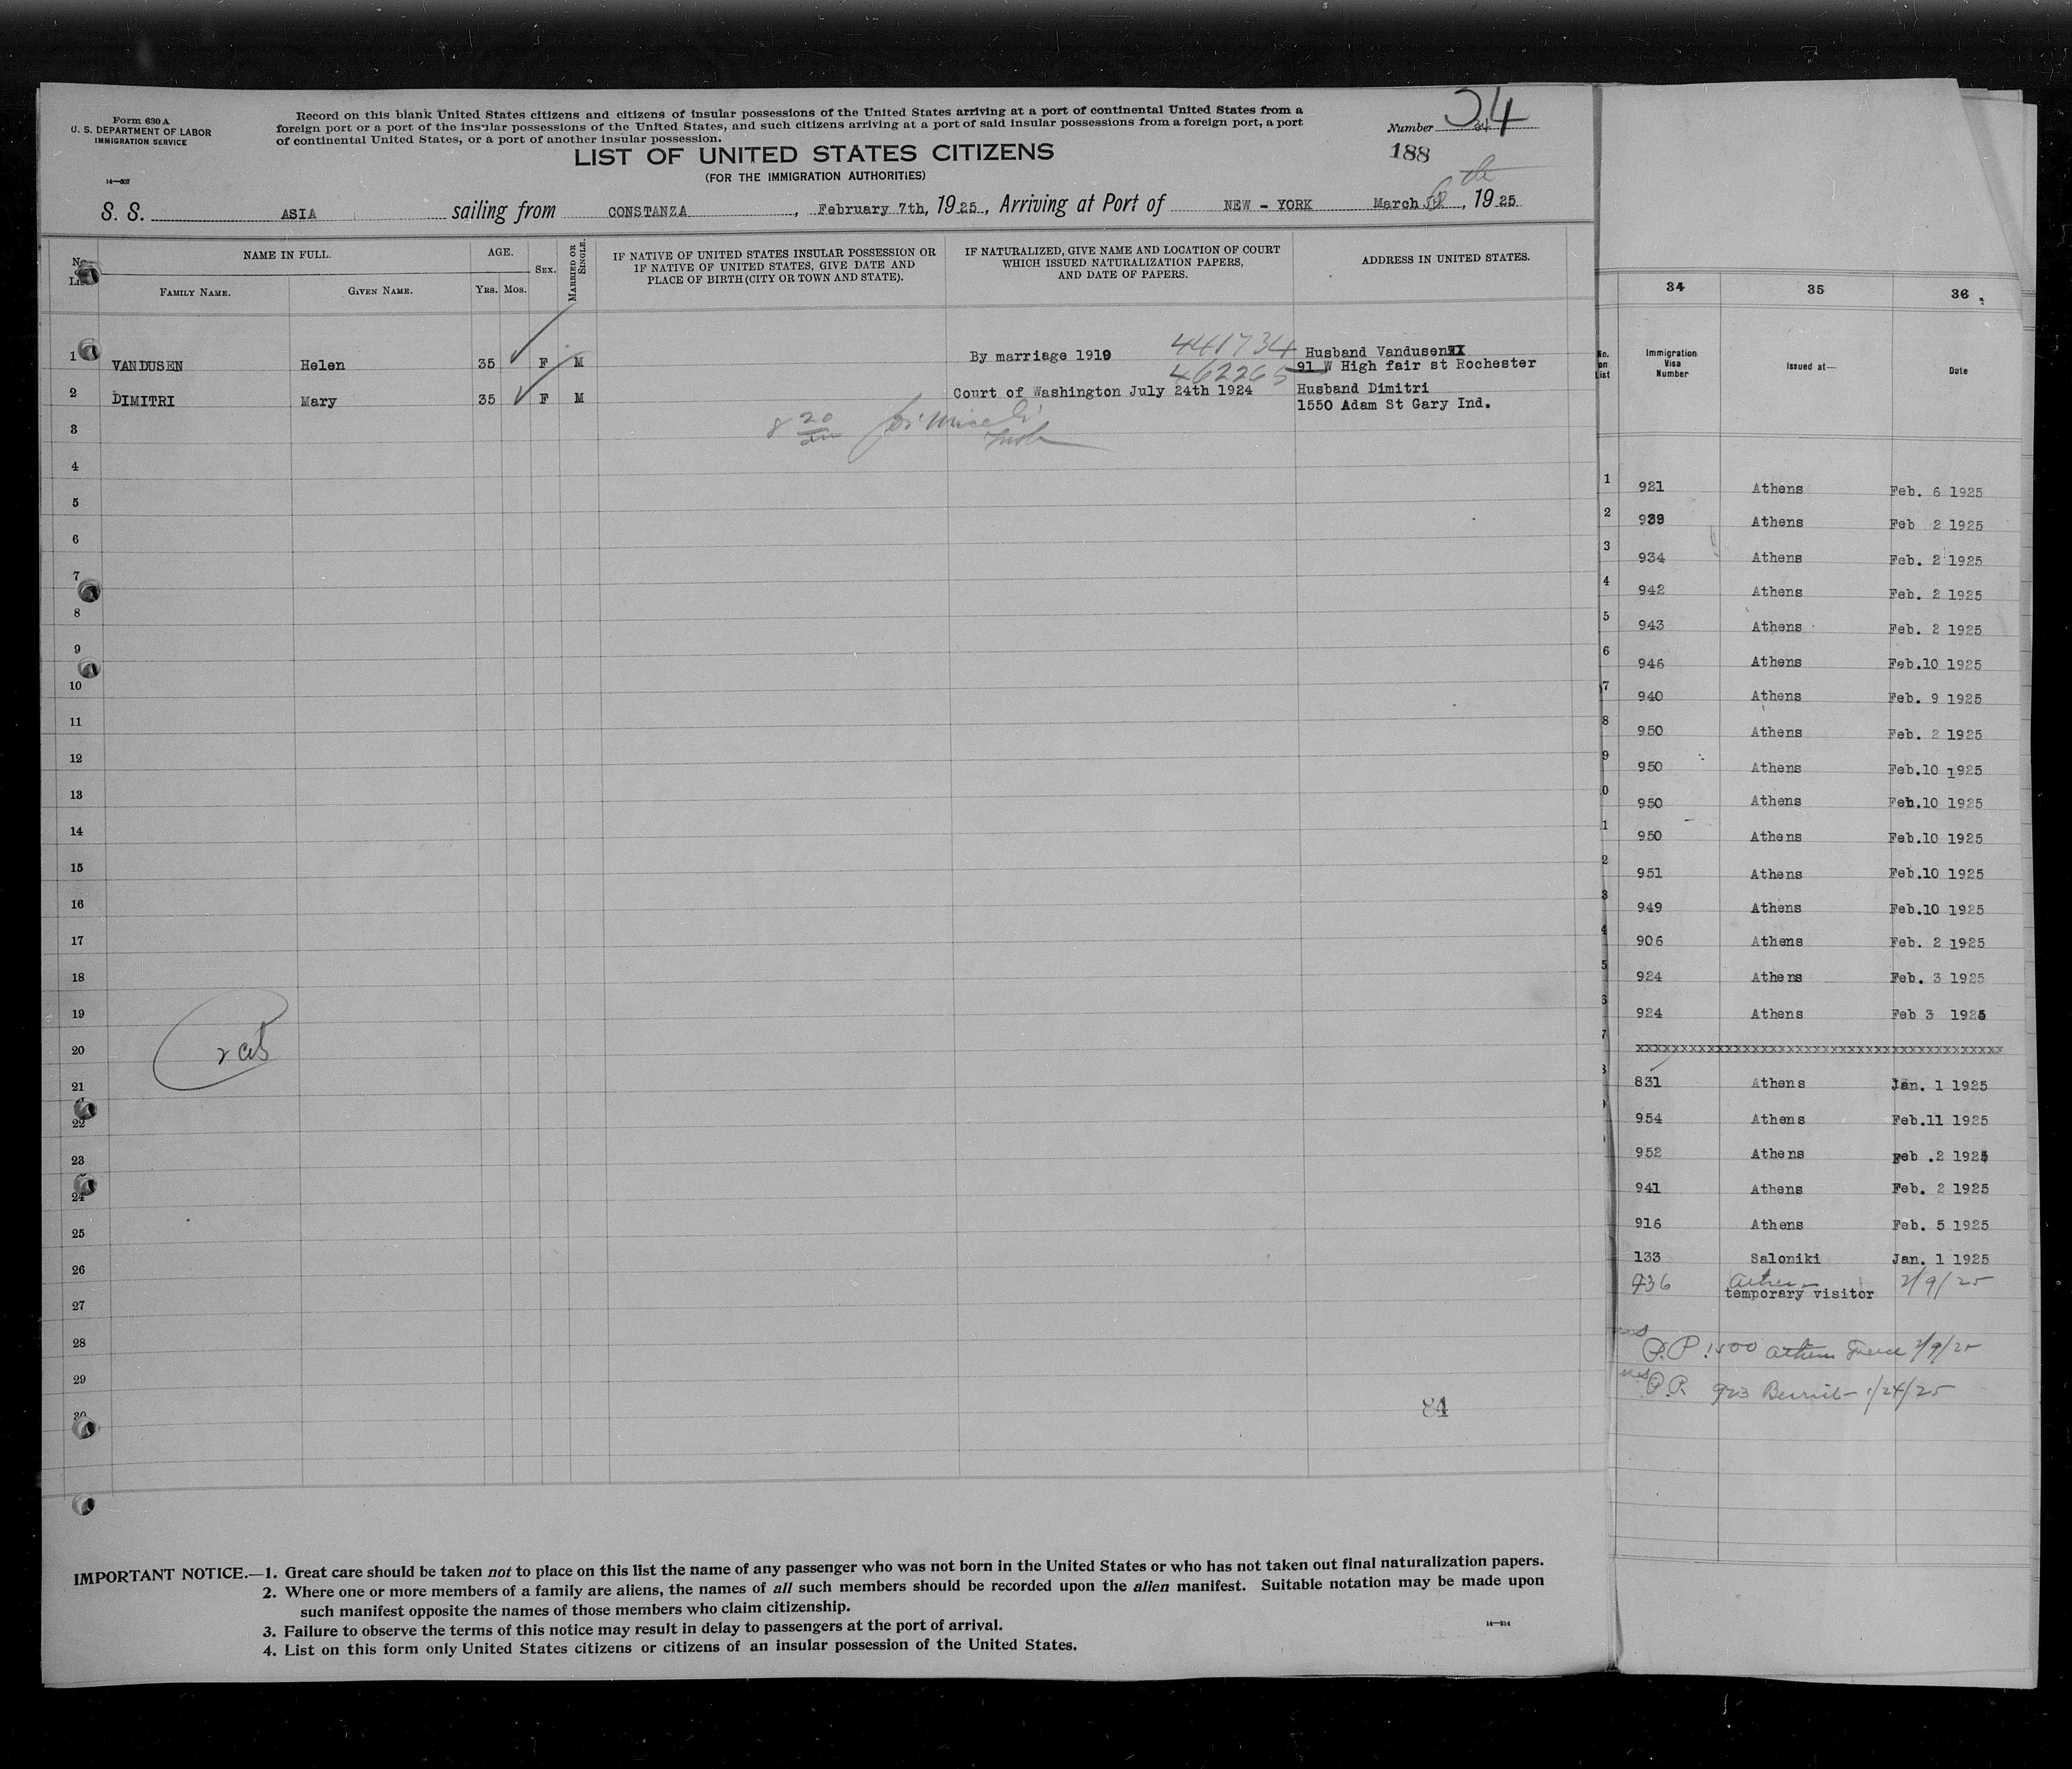 Form 630 A
U. S. DEPARTMENT OF LABOR
IMMIGRATION SERVICE
14—307
Record on this blank United States citizens and citizens of insular possessions of the United States arriving at a port of continental United States from a
foreign port or a port of the insular possessions of the United States, and such citizens arriving at a port of said insular possessions from a foreign port, a port
of continental United States, or a port of another insular possession.
Number 34
188
LIST OF UNITED STATES CITIZENS
(FOR THE IMMIGRATION AUTHORITIES)
S. S. ASIA sailing from CONSTANZA, February 7th, 1925, Arriving at Port of NEW - YORK March 6th, 1925
No. on List
NAME IN FULL.
FAMILY NAME.
GIVEN NAME.
AGE.
YRS. MOS.
SEX.
MARRIED OR SINGLE.
IF NATIVE OF UNITED STATES INSULAR POSSESSION OR
IF NATIVE OF UNITED STATES, GIVE DATE AND
PLACE OF BIRTH (CITY OR TOWN AND STATE).
IF NATURALIZED, GIVE NAME AND LOCATION OF COURT
WHICH ISSUED NATURALIZATION PAPERS,
AND DATE OF PAPERS.
ADDRESS IN UNITED STATES.
441734
1 VANDUSEN Helen 35 F M By marriage 1919 Husband Vandusen
91 W High fair st Rochester
462265
2 DIMITRI Mary 35 F M Court of Washington July 24th 1924 Husband Dimitri
1550 Adam St Gary Ind.
3 8 20
4
5
6
7
8
9
10
11
12
13
14
15
16
17
18
19
20
21
22
23
24
25
26
27
28
29
30
84
IMPORTANT NOTICE.—1. Great care should be taken not to place on this list the name of any passenger who was not born in the United States or who has not taken out final naturalization papers.
2. Where one or more members of a family are aliens, the names of all such members should be recorded upon the alien manifest. Suitable notation may be made upon
such manifest opposite the names of those members who claim citizenship.
3. Failure to observe the terms of this notice may result in delay to passengers at the port of arrival.
4. List on this form only United States citizens or citizens of an insular possession of the United States.
14—214
34 35 36
No. on List
Immigration Visa Number
Issued at—
Date
1 921 Athens Feb. 6 1925
2 939 Athens Feb 2 1925
3 934 Athens Feb. 2 1925
4 942 Athens Feb. 2 1925
5 943 Athens Feb. 2 1925
6 946 Athens Feb.10 1925
7 940 Athens Feb. 9 1925
8 950 Athens Feb. 2 1925
9 950 Athens Feb.10 1925
0 950 Athens Feb.10 1925
1 950 Athens Feb.10 1925
2 951 Athens Feb.10 1925
3 949 Athens Feb.10 1925
4 906 Athens Feb. 2 1925
5 924 Athens Feb. 3 1925
6 924 Athens Feb 3 1925
7 xxxxxxxxxxxxxxxxxxxxxxxxxxxxxxxxxxxxx
831 Athens Jan. 1 1925
954 Athens Feb.11 1925
952 Athens Feb .2 1925
941 Athens Feb. 2 1925
916 Athens Feb. 5 1925
133 Saloniki Jan. 1 1925
936 Athens 2/9/25
temporary visitor
P.P. 1500 Athens Greece 2/9/25
P.P. 923 Beirut 1/24/25